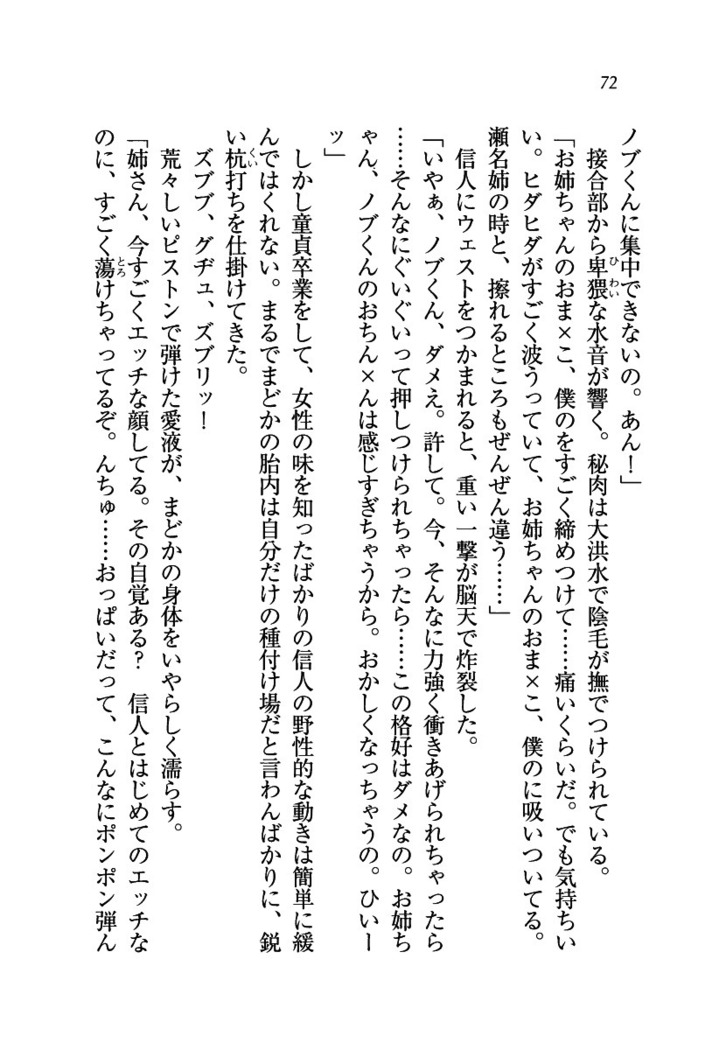 72
ノブくんに集中できないの。あん！」
接合部から卑猥な水音が響く。秘肉は大洪水で陰毛が撫でつけられている。
「お姉ちゃんのおま×こ、僕のをすごく締めつけて……痛いくらいだ。でも気持ちい
い。ヒダヒダがすごく波うっていて、お姉ちゃんのおま×こ、僕のに吸いついてる。
瀬名姉の時と、擦れるところもぜんぜん違う……」
信人にウェストをつかまれると、重い一撃が脳天で炸裂した。
「いやぁ、ノブくん、ダメえ。許して。今、そんなに力強く衝きあげられちゃったら
……そんなにぐいぐいって押しつけられちゃったら……この格好はダメなの。お姉ち
ゃん、ノブくんのおちん×んは感じすぎちゃうから。おかしくなっちゃうの。ひいー
ッ」
しかし童貞卒業をして、女性の味を知ったばかりの信人の野性的な動きは簡単に緩
んではくれない。まるでまどかの胎内は自分だけの種付け場だと言わんばかりに、鋭
い杭打ちを仕掛けてきた。
ズブブ、グヂュ、ズブリッ！
荒々しいピストンで弾けた愛液が、まどかの身体をいやらしく濡らす。
「姉さん、今すごくエッチな顔してる。その自覚ある？　信人とはじめてのエッチな
のに、すごく蕩けちゃってるぞ。んちゅ……おっぱいだって、こんなにポンポン弾ん